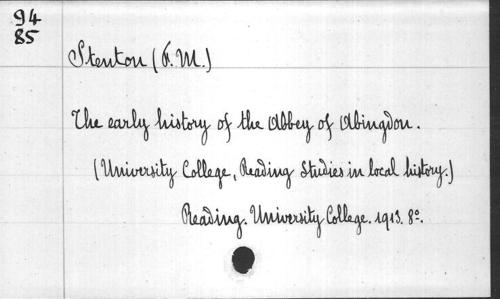 94
85
Stenton (F. M.)
The early history of the Abbey of Abingdon.
(University College, Reading Studies in local history.)
Reading. University College. 1913. 8º.